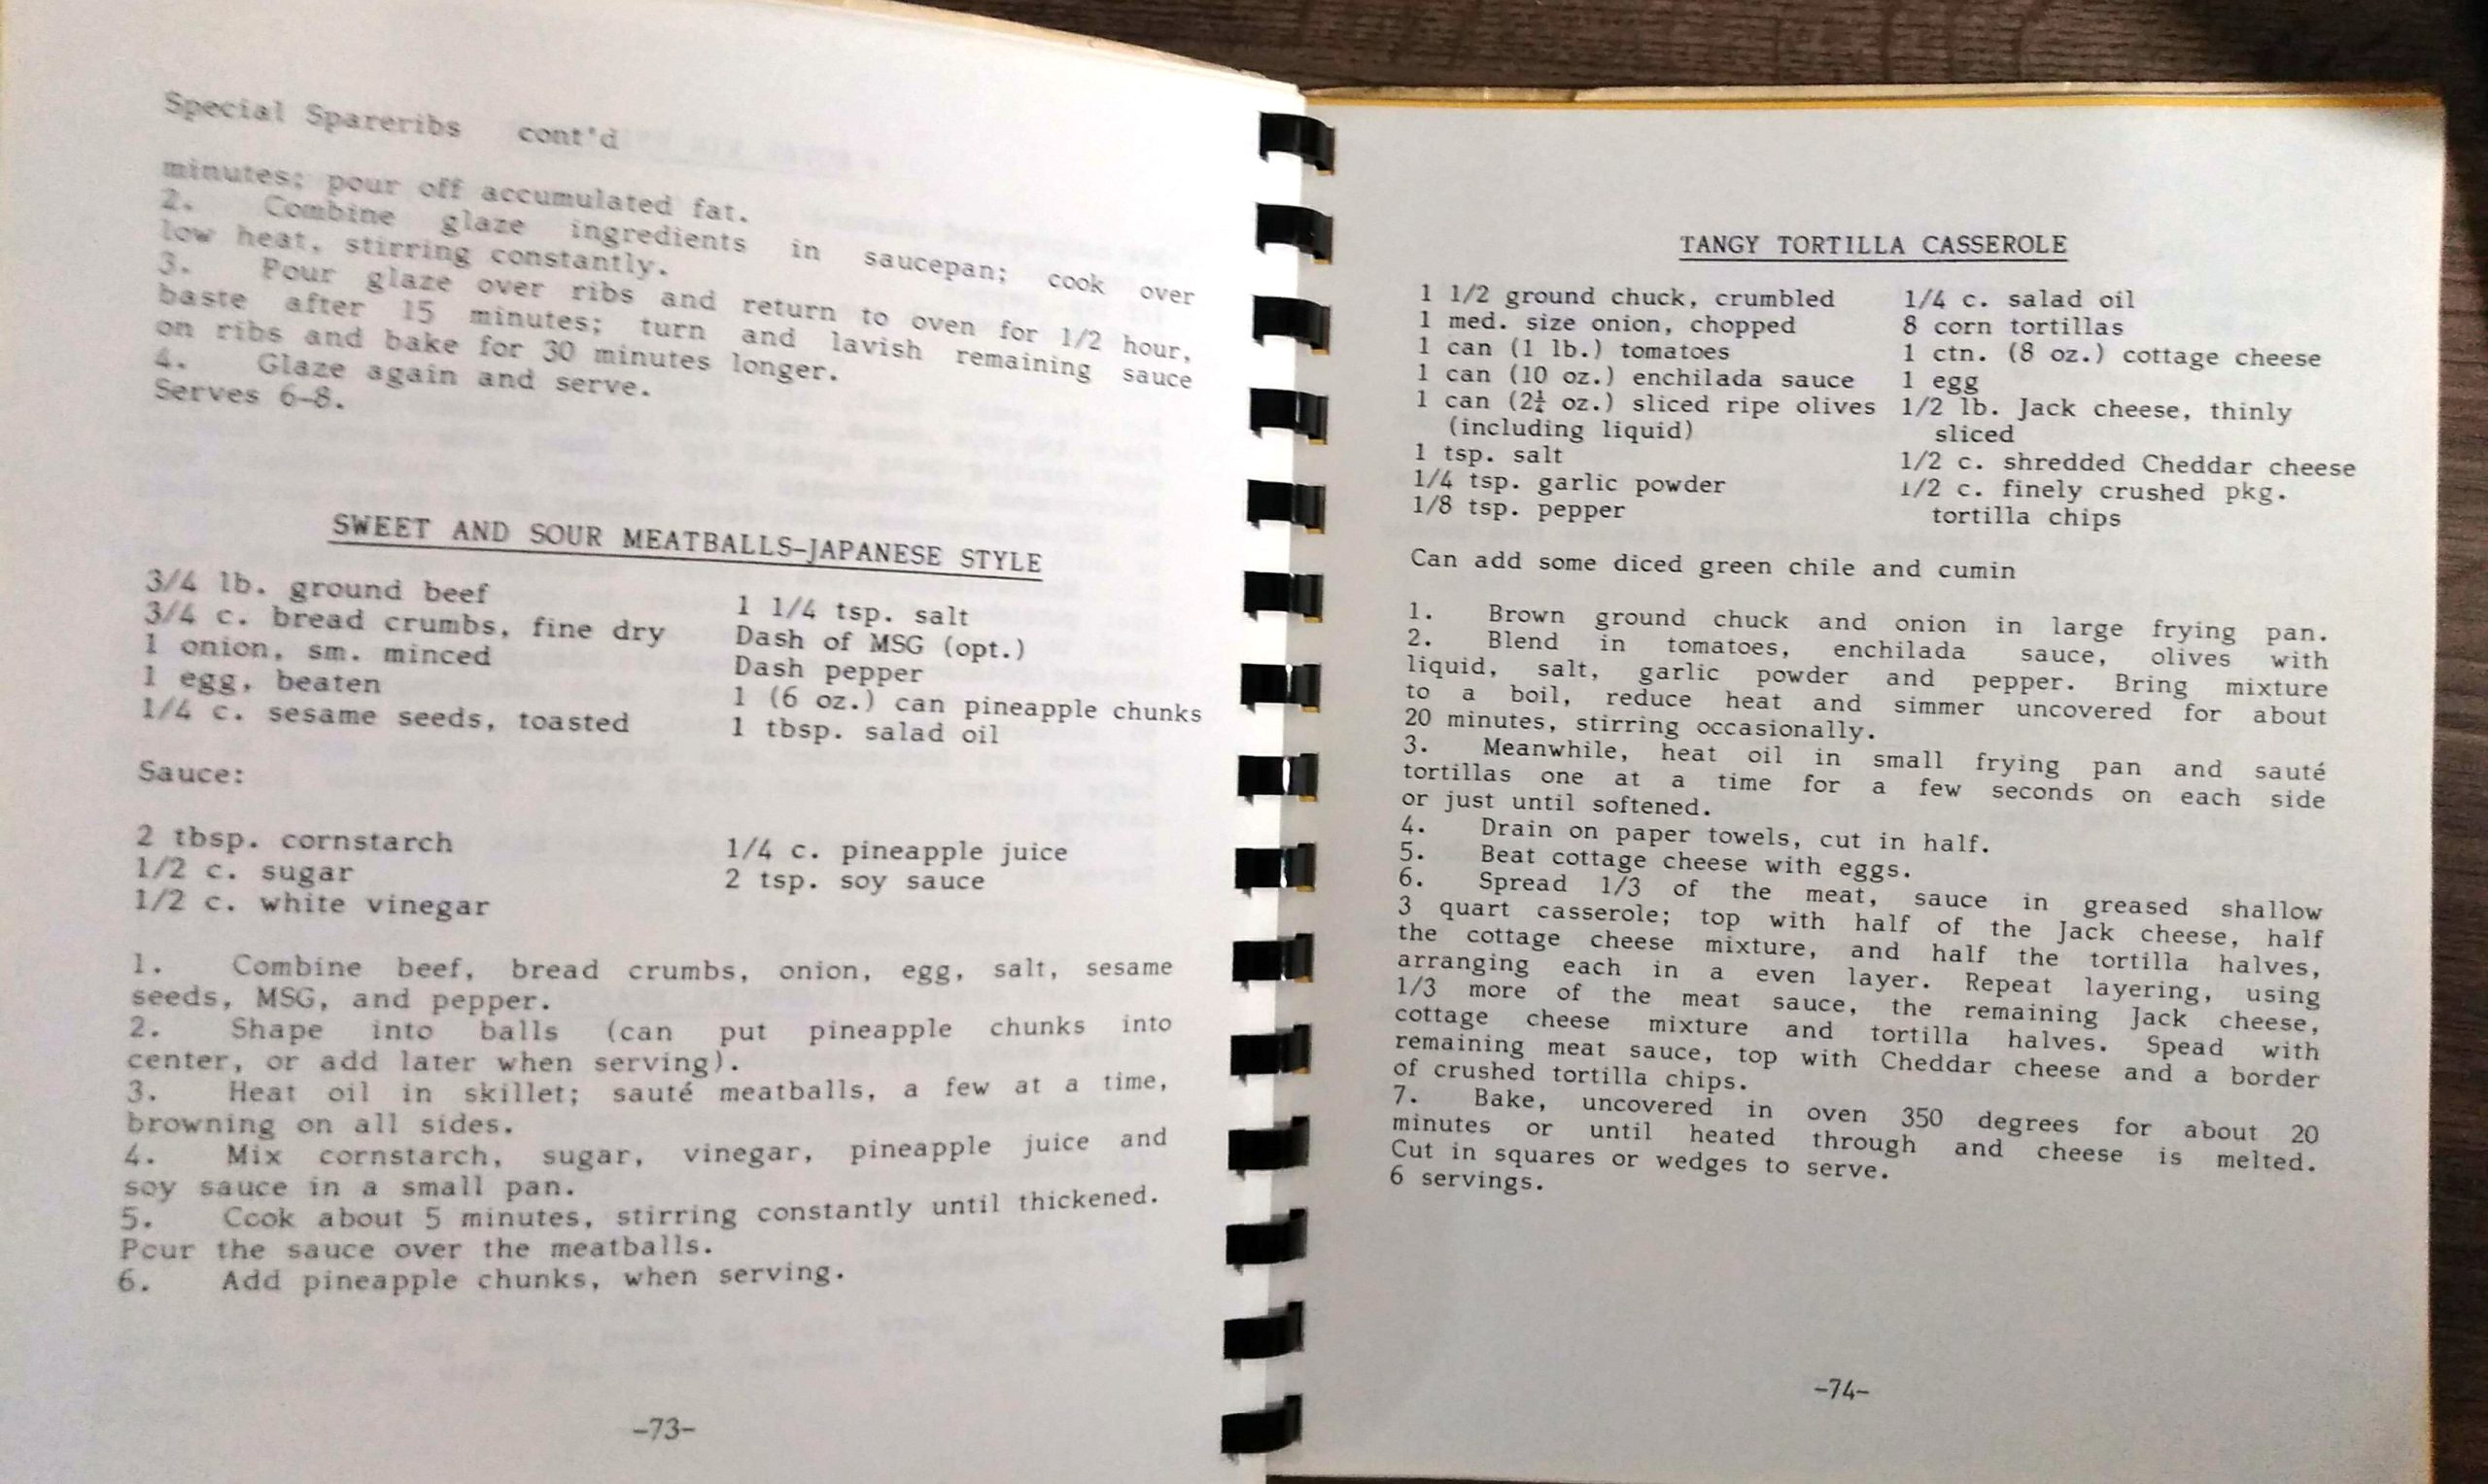 Special Spareribs cont'd
minutes; pour off accumulated fat.
2. Combine glaze ingredients in saucepan; cook over
low heat, stirring constantly.
3. Pour glaze over ribs and return to oven for 1/2 hour,
baste after 15 minutes; turn and lavish remaining sauce
on ribs and bake for 30 minutes longer.
4. Glaze again and serve.
Serves 6-8.
SWEET AND SOUR MEATBALLS-JAPANESE STYLE
3/4 lb. ground beef
3/4 c. bread crumbs, fine dry
1 onion, sm. minced
1 egg, beaten
1/4 c. sesame seeds, toasted
1 1/4 tsp. salt
Dash of MSG (opt.)
Dash pepper
1 (6 oz.) can pineapple chunks
1 tbsp. salad oil
Sauce:
2 tbsp. cornstarch
1/2 c. sugar
1/2 c. white vinegar
1/4 c. pineapple juice
2 tsp. soy sauce
1. Combine beef, bread crumbs, onion, egg, salt, sesame
seeds, MSG, and pepper.
2. Shape into balls (can put pineapple chunks into
center, or add later when serving).
3. Heat oil in skillet; sauté meatballs, a few at a time,
browning on all sides.
4. Mix cornstarch, sugar, vinegar, pineapple juice and
soy sauce in a small pan.
5. Cook about 5 minutes, stirring constantly until thickened.
Pour the sauce over the meatballs.
6. Add pineapple chunks, when serving.
-73-
TANGY TORTILLA CASSEROLE
1 1/2 ground chuck, crumbled
1 med. size onion, chopped
1 can (1 lb.) tomatoes
1 can (10 oz.) enchilada sauce
1 can (2¼ oz.) sliced ripe olives
(including liquid)
1 tsp. salt
1/4 tsp. garlic powder
1/8 tsp. pepper
1/4 c. salad oil
8 corn tortillas
1 ctn. (8 oz.) cottage cheese
1 egg
1/2 lb. Jack cheese, thinly
sliced
1/2 c. shredded Cheddar cheese
1/2 c. finely crushed pkg.
tortilla chips
Can add some diced green chile and cumin
1. Brown ground chuck and onion in large frying pan.
2. Blend in tomatoes, enchilada sauce, olives with
liquid, salt, garlic powder and pepper. Bring mixture
to a boil, reduce heat and simmer uncovered for about
20 minutes, stirring occasionally.
3. Meanwhile, heat oil in small frying pan and sauté
tortillas one at a time for a few seconds on each side
or just until softened.
4. Drain on paper towels, cut in half.
5. Beat cottage cheese with eggs.
6. Spread 1/3 of the meat, sauce in greased shallow
3 quart casserole; top with half of the Jack cheese, half
the cottage cheese mixture, and half the tortilla halves,
arranging each in a even layer. Repeat layering, using
1/3 more of the meat sauce, the remaining Jack cheese,
cottage cheese mixture and tortilla halves. Spead with
remaining meat sauce, top with Cheddar cheese and a border
of crushed tortilla chips.
7. Bake, uncovered in oven 350 degrees for about 20
minutes or until heated through and cheese is melted.
Cut in squares or wedges to serve.
6 servings.
-74-